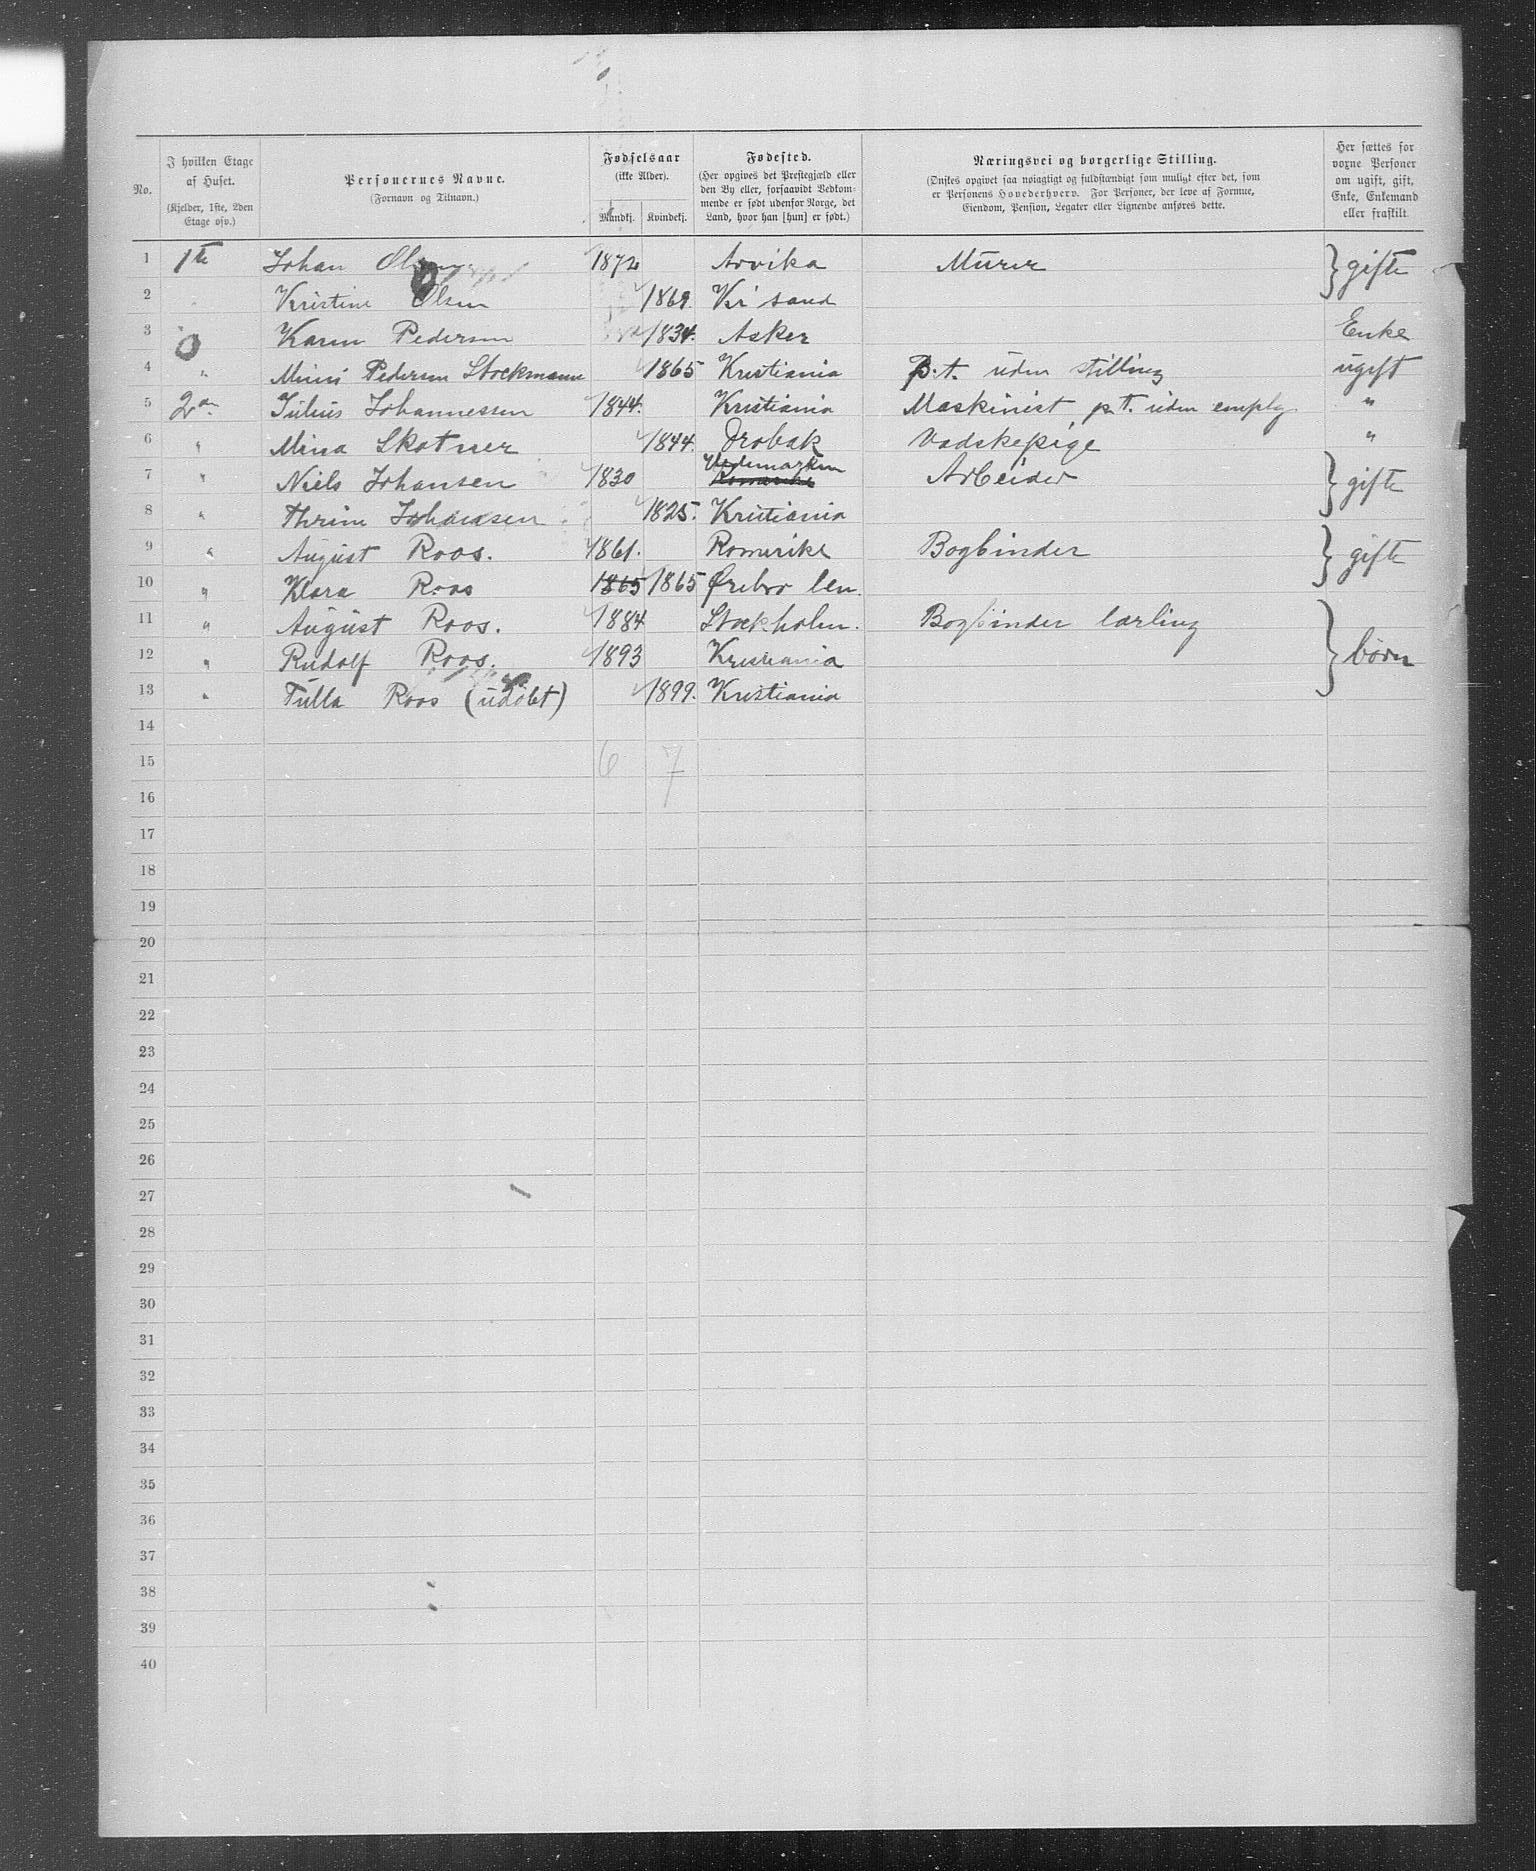 No. | I hvilken Etage af Huset. (Kjelder, 1ste, 2den Etage osv.) | Personernes Navne. (Fornavn og Tilnavn.) | Fødselsaar (ikke Alder). Mandkj. | Kvindekj. | Fødested. (Her opgives det Præstegjæld eller den By eller, forsaavidt Vedkommende er født udenfor Norge, det Land, hvor han [hun] er født.) | Næringsvei og borgerlige Stilling. (Ønskes opgivet saa nøiagtigt og fuldstændigt som muligt efter det, som er Personens Hovederhverv. For Personer, der leve af Formue, Eiendom, Pension, Legater eller Lignende anføres dette. | Her sættes for voxne Personer om ugift, gift, Enke, Enkemand eller fraskilt.
1 | 1te | Johan Olsen | 1872 | | Arvika | Murer | } gifte
2 | | Kristine Olsen | | 1869. | Kr' sand
3 | " | Karen Pedersen | | 1834. | Asker | | Enke
4 | " | Mimi Pedersen Stockmann | | 1865 | Kristiania | p.t. uden stilling | ugift
5 | 2den | Julius Johannessen | 1844. | | Kristiania | Maskinist p.t. uden emploj. | "
6 | " | Mina Skotner | | 1844. | Drøbak | Vadskepige | "
7 | " | Niels Johansen | 1830 | | Hedemarken Romerike | Arbeider | } gifte
8 | " | Thrine Johansen | | 1825. | Kristiania
9 | " | August Roos. | 1861. | | Romerike | Bogbinder | } gifte
10 | " | Klara Roos | 1865 | 1865 | Ørebro len.
11 | " | August Roos. | 1884 | | Stockholm. | Bogbinder lærling | } børn
12 | " | Rudolf Roos. | 1893 | | Kristiania
13 | " | Tulla Roos (udøbt) | | 1899. | Kristiania
14
15 | | | 6 | 7
16
17
18
19
20
21
22
23
24
25
26
27
28
29
30
31
32
33
34
35
36
37
38
39
40